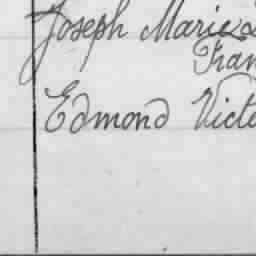 Joseph Marie
Fran
Edmond Victo